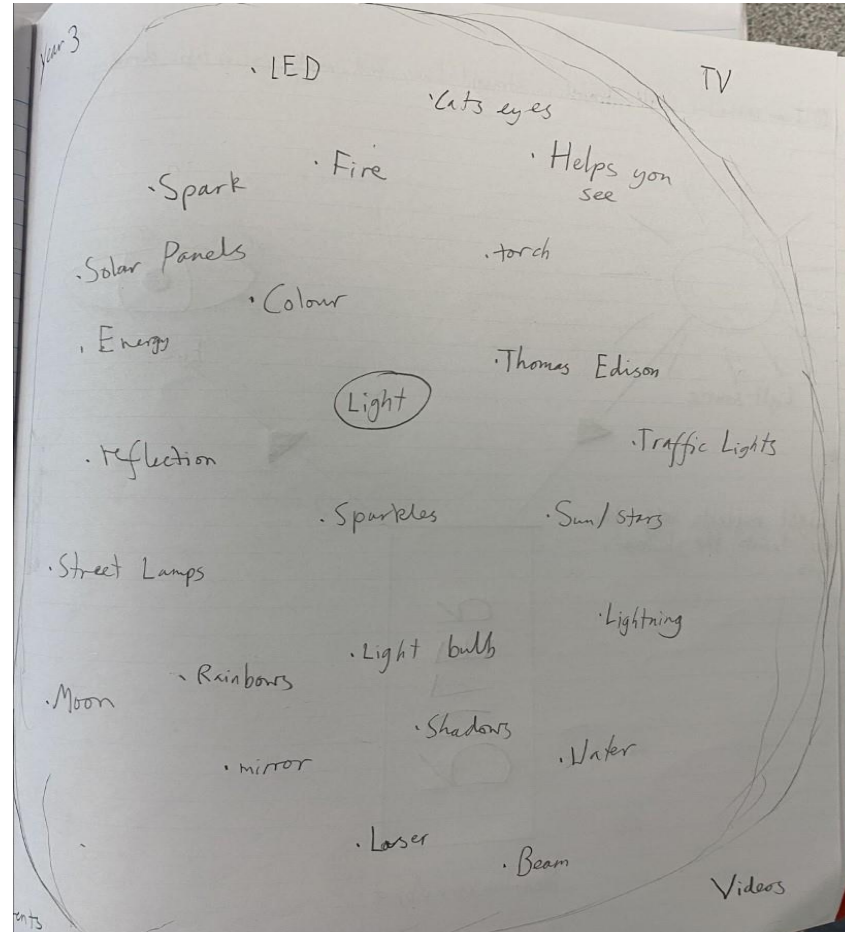 Year 3
LED
TV
Cats eyes
Fire
Helps you
see
Spark
Solar Panels
torch
Colour
Energy
Thomas Edison
Light
Traffic Lights
reflection
Sparkles
Sun/stars
Street Lamps
Lightning
Light bulb
Rainbows
Moon
Shadows
Water
mirror
Laser
Beam
Videos